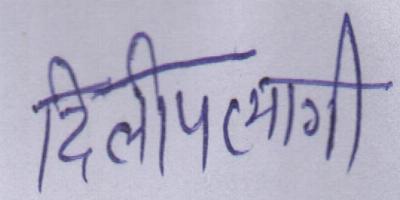 दिलीप त्यागी